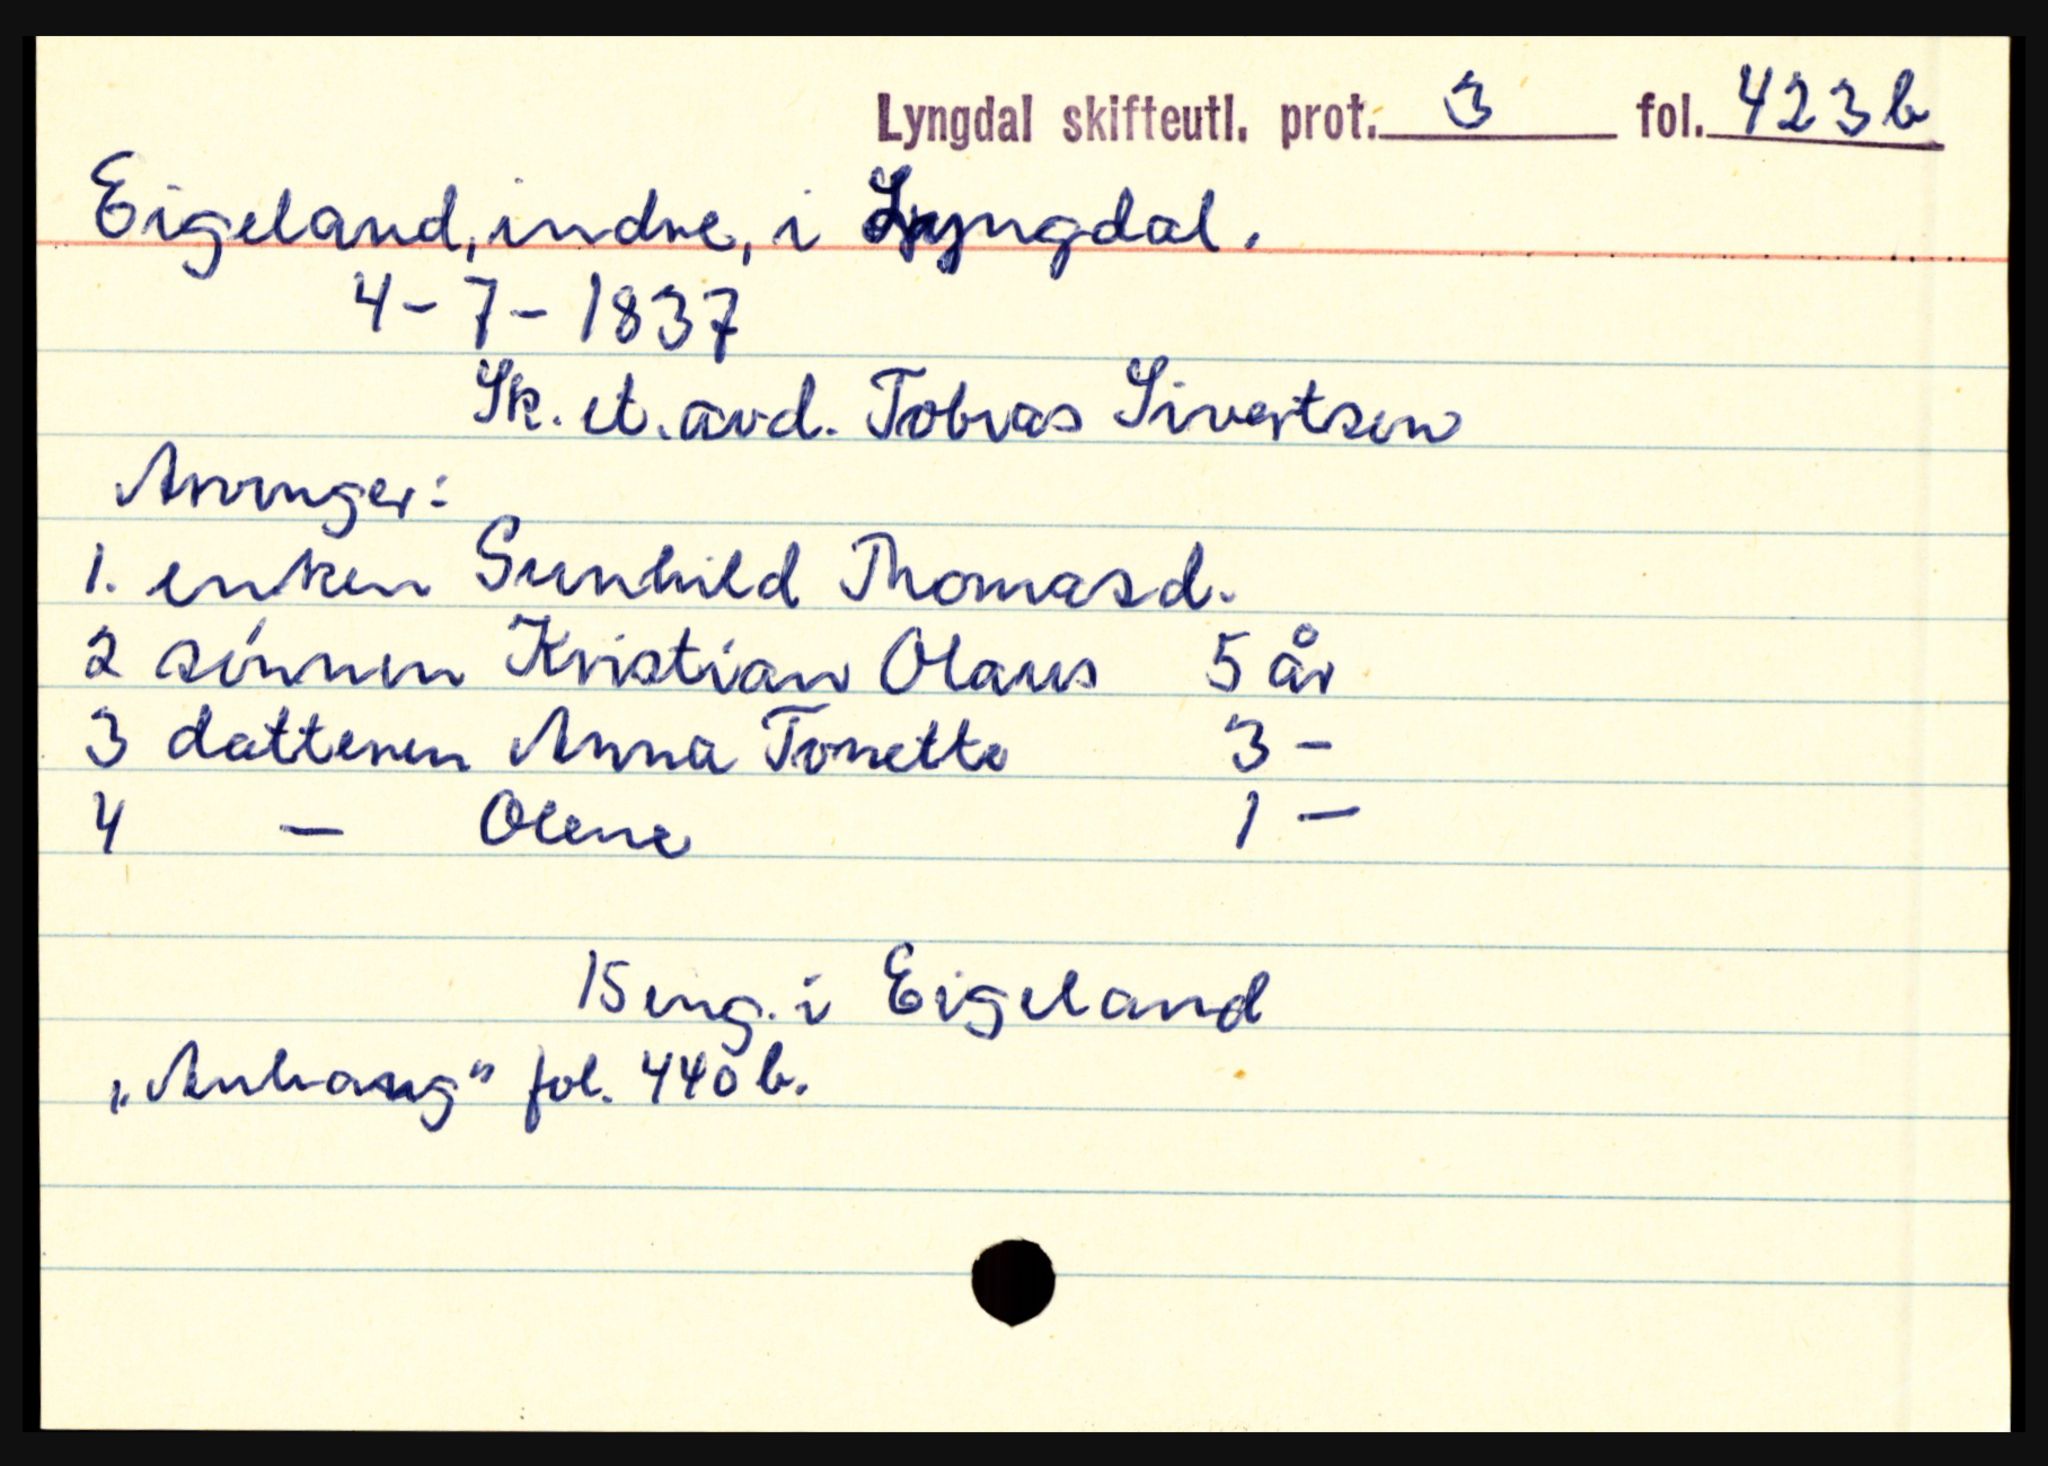 Lyngdal skifteutl. prot. 3 fol. 423 b
Eigeland, indre, i Lyngdal.
4-7-1837
Sk. et. avd. Tobias Sivertsen
Arvinger:
1. enken Gunhild Thomasd.
2 sønnen Kristian Olaus 5 år
3 datteren Anna Tonette 3 -
4 - Olene 1 -
15 eng. i Eigeland
„Anhang" fol. 440 b.